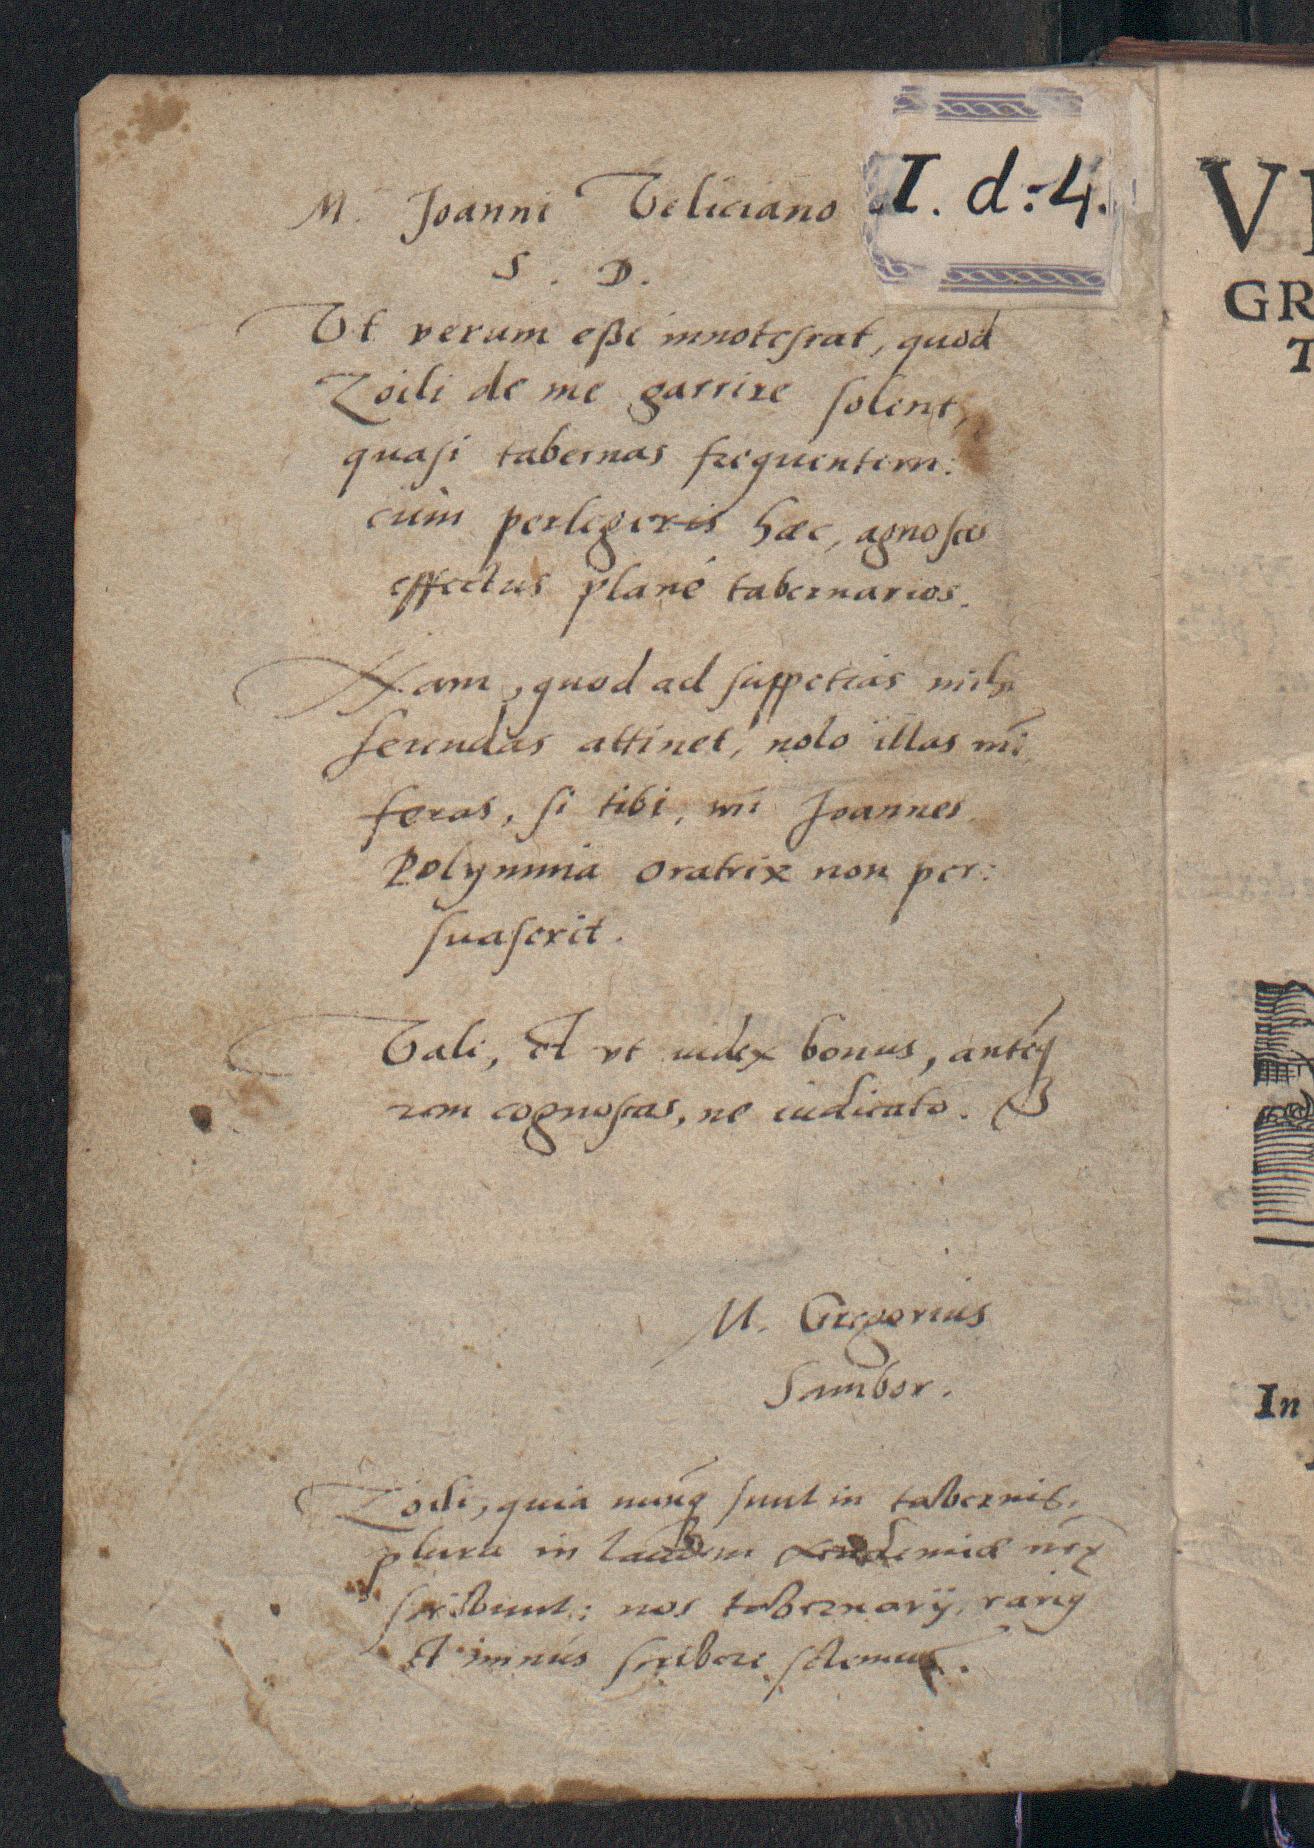 M. Joanni Veliciano
I. d:4.
S. D.
Vt verum esse innotescat, quod
Zoili de me garrire solent,
quasi tabernas frequentem:
cùm perlegeris hæc, agnosces
effectus planè tabernarios.
Nam, quod ad suppetias mihi
ferendas attinet, nolo illas mi
feras, si tibi, mi Joannes
Polymnia oratrix non per:
suaserit.
Vale, et vt iudex bonus, anteq́
rem cognoscas, ne iudicato.
M. Gregorius
Sambor.
Zoili, quia nunq́ sunt in tabernis,
plura in laudem Academiæ
scribunt: nos tabernarij, rariq
et minus scribere solemus.
VI
GR
T
In